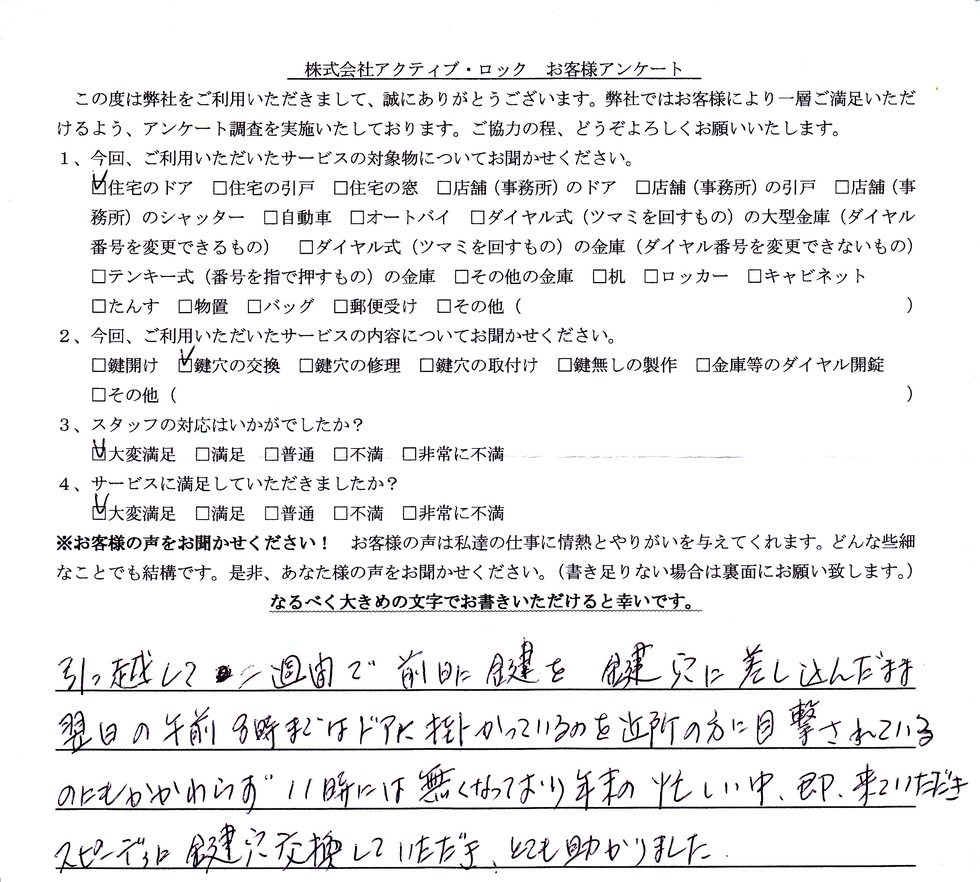 株式会社アクティブ・ロック　お客様アンケート
この度は弊社をご利用いただきまして、誠にありがとうございます。弊社ではお客様により一層ご満足いただ
けるよう、アンケート調査を実施いたしております。ご協力の程、どうぞよろしくお願いいたします。
１、今回、ご利用いただいたサービスの対象物についてお聞かせください。
☑住宅のドア　□住宅の引戸　□住宅の窓　□店舗（事務所）のドア　□店舗（事務所）の引戸　□店舗（事
務所）のシャッター　□自動車　□オートバイ　□ダイヤル式（ツマミを回すもの）の大型金庫（ダイヤル
番号を変更できるもの）　□ダイヤル式（ツマミを回すもの）の金庫（ダイヤル番号を変更できないもの）
□テンキー式（番号を指で押すもの）の金庫　□その他の金庫　□机　□ロッカー　□キャビネット
□たんす　□物置　□バッグ　□郵便受け　□その他（　）
２、今回、ご利用いただいたサービスの内容についてお聞かせください。
□鍵開け　☑鍵穴の交換　□鍵穴の修理　□鍵穴の取付け　□鍵無しの製作　□金庫等のダイヤル開錠
□その他（　）
３、スタッフの対応はいかがでしたか？
☑大変満足　□満足　□普通　□不満　□非常に不満
４、サービスに満足していただきましたか？
☑大変満足　□満足　□普通　□不満　□非常に不満
※お客様の声をお聞かせください！　お客様の声は私達の仕事に情熱とやりがいを与えてくれます。どんな些細
なことでも結構です。是非、あなた様の声をお聞かせください。（書き足りない場合は裏面にお願い致します。）
なるべく大きめの文字でお書きいただけると幸いです。
引っ越して二週間で前日に鍵を鍵穴に差し込んだまま
翌日の午前8時まではドアに掛かっているのを近所の方に目撃されている
のにもかかわらず11時には無くなっており年末の忙しい中、即、来ていただき
スピーディに鍵穴交換していただき、とても助かりました.